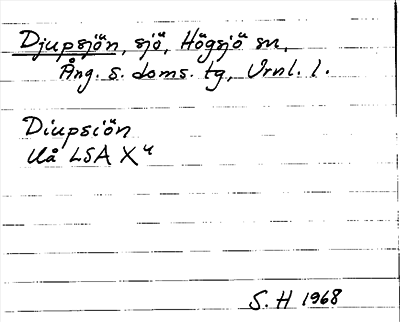 Djupsjön, sjö, Högsjö sn,
Ång. s. doms. tg, Vrnl. l.
Diupsiön
Uå LSA X4
S.H 1968